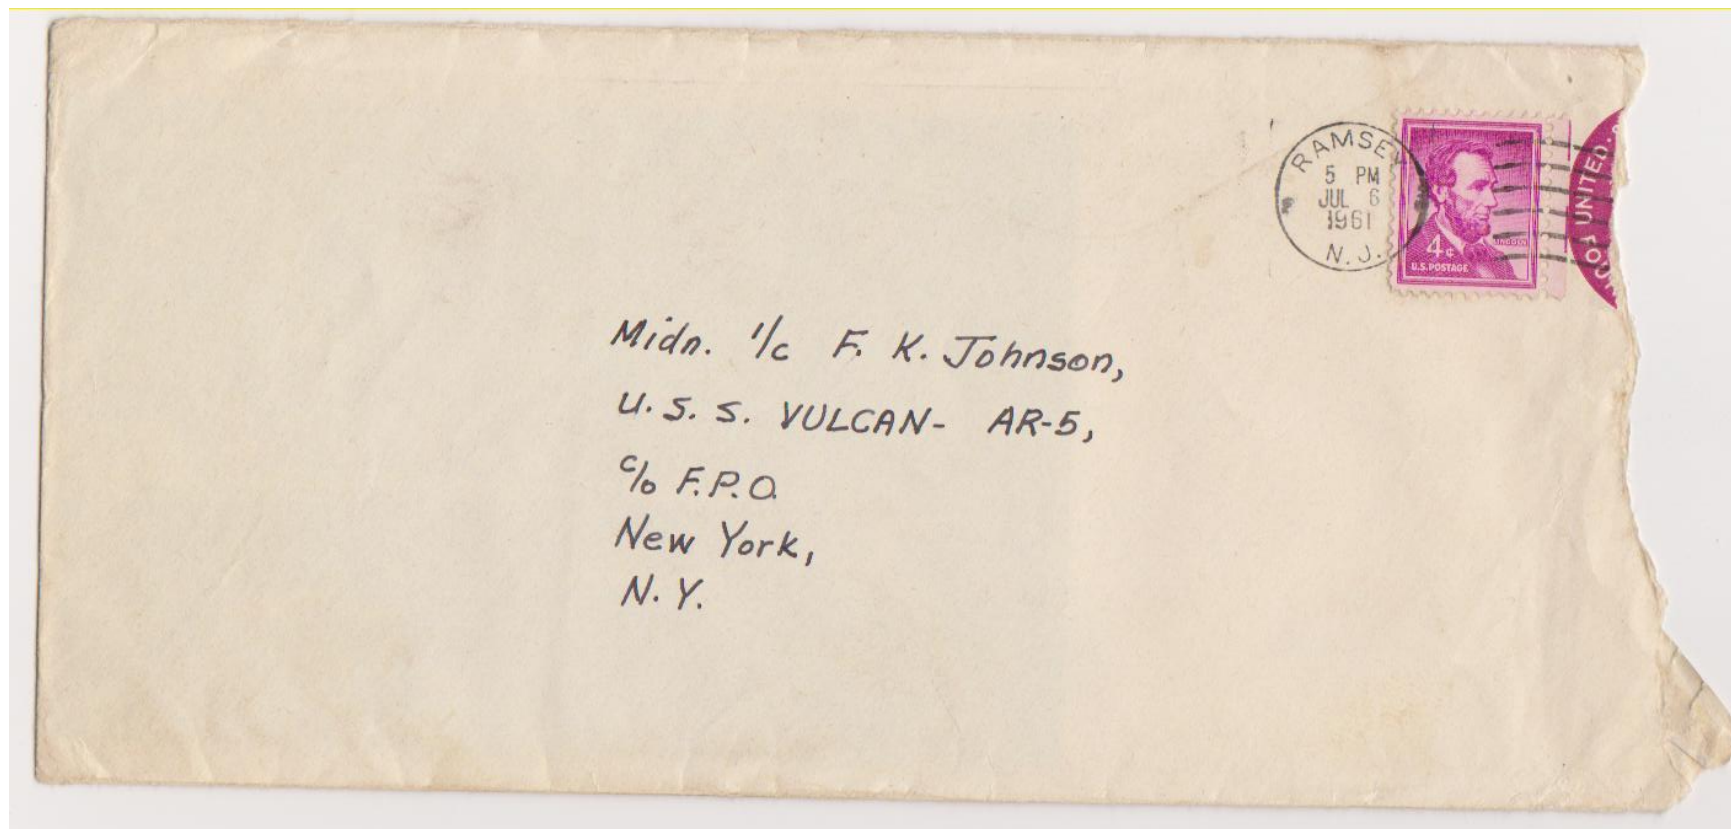 RAMSEY
5 PM
JUL 6
1961
N.J.
4¢
LINCOLN
U.S. POSTAGE
UNITED
Midn. 1/c F. K. Johnson,
U. S. S. VULCAN- AR-5,
c/o F.P.O.
New York,
N. Y.